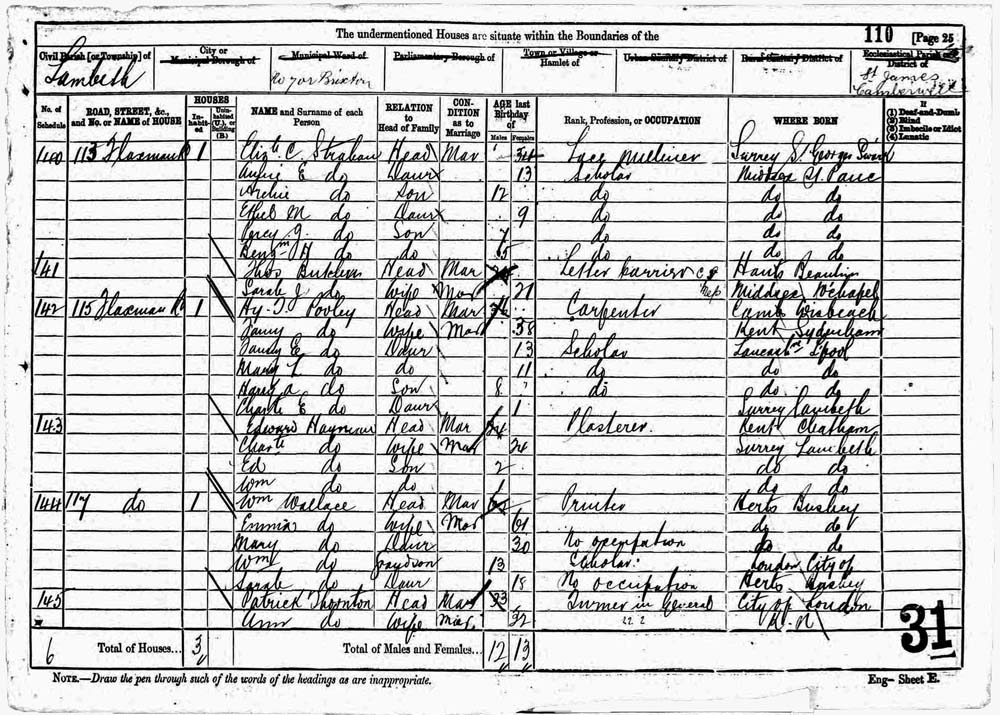 The undermentioned Houses are situate within the Boundaries of the
110 [Page 25
Civil Parish [or Township] of
City or Municipal Borough of
Municipal Ward of
Parliamentary Borough of
Town or Village or Hamlet of
Urban Sanitary District of
Rural Sanitary District of
Ecclesiastical Parish or District of
Lambeth
St James Camberwell
No. of Schedule
ROAD, STREET, &c., and No. or NAME of HOUSE
HOUSES
Inhabited
Uninhabited (U.), or Building (B.)
NAME and Surname of each Person
RELATION to Head of Family
CONDITION as to Marriage
AGE last Birthday of
Males
Females
Rank, Profession, or OCCUPATION
WHERE BORN
If
(1) Deaf-and-Dumb
(2) Blind
(3) Imbecile or Idiot
(4) Lunatic
140 113 Flaxman R 1 Elizth C. Strahan Head Mar 34 Lace Milliner Surrey St Georges
Annie E do Daur 13 Scholar Middsex St Panc
Archie do Son 12 do do do
Ethel M do Daur 9 do do do
Percy J. do Son 7 do do do
Benjm H do do 5 do do do
141 Thos Head Mar Letter Carrier Hants Beaulieu
Sarah J do Wife Mar 21 Middsex
142 115 Flaxman Rd 1 Hy. T. Povley Head Mar 36 Carpenter Camb
Fanny do Wife Mar 38 Kent Sydenham
Fanny E do Daur 13 Scholar Lancash Lpool
Mary L do do 11 do do do
Harry A do Son 8 do do do
Charlte E do Daur 1 Surrey Lambeth
143 Edward Head Mar 24 Plasterer. Kent Chatham
Charte do Wife Mar 24 Surrey Lambeth
Ed do Son 2 do do
Wm do do 1 do do
144 117 do 1 Wm Wallace Head Mar 62 Printer Herts Bushey
Emma do Wife Mar 61 do do
Mary do Daur 30 No occupation do do
Wm do Grandson 13 Scholar London City of
Sarah do Daur 18 No occupation Herts Bushey
145 Patrick Thornton Head Mar 33 Turner in General City of London
Ann do Wife Mar 32
31
6 Total of Houses... 3 Total of Males and Females... 12 13
NOTE.—Draw the pen through such of the words of the headings as are inappropriate.
Eng- Sheet E.